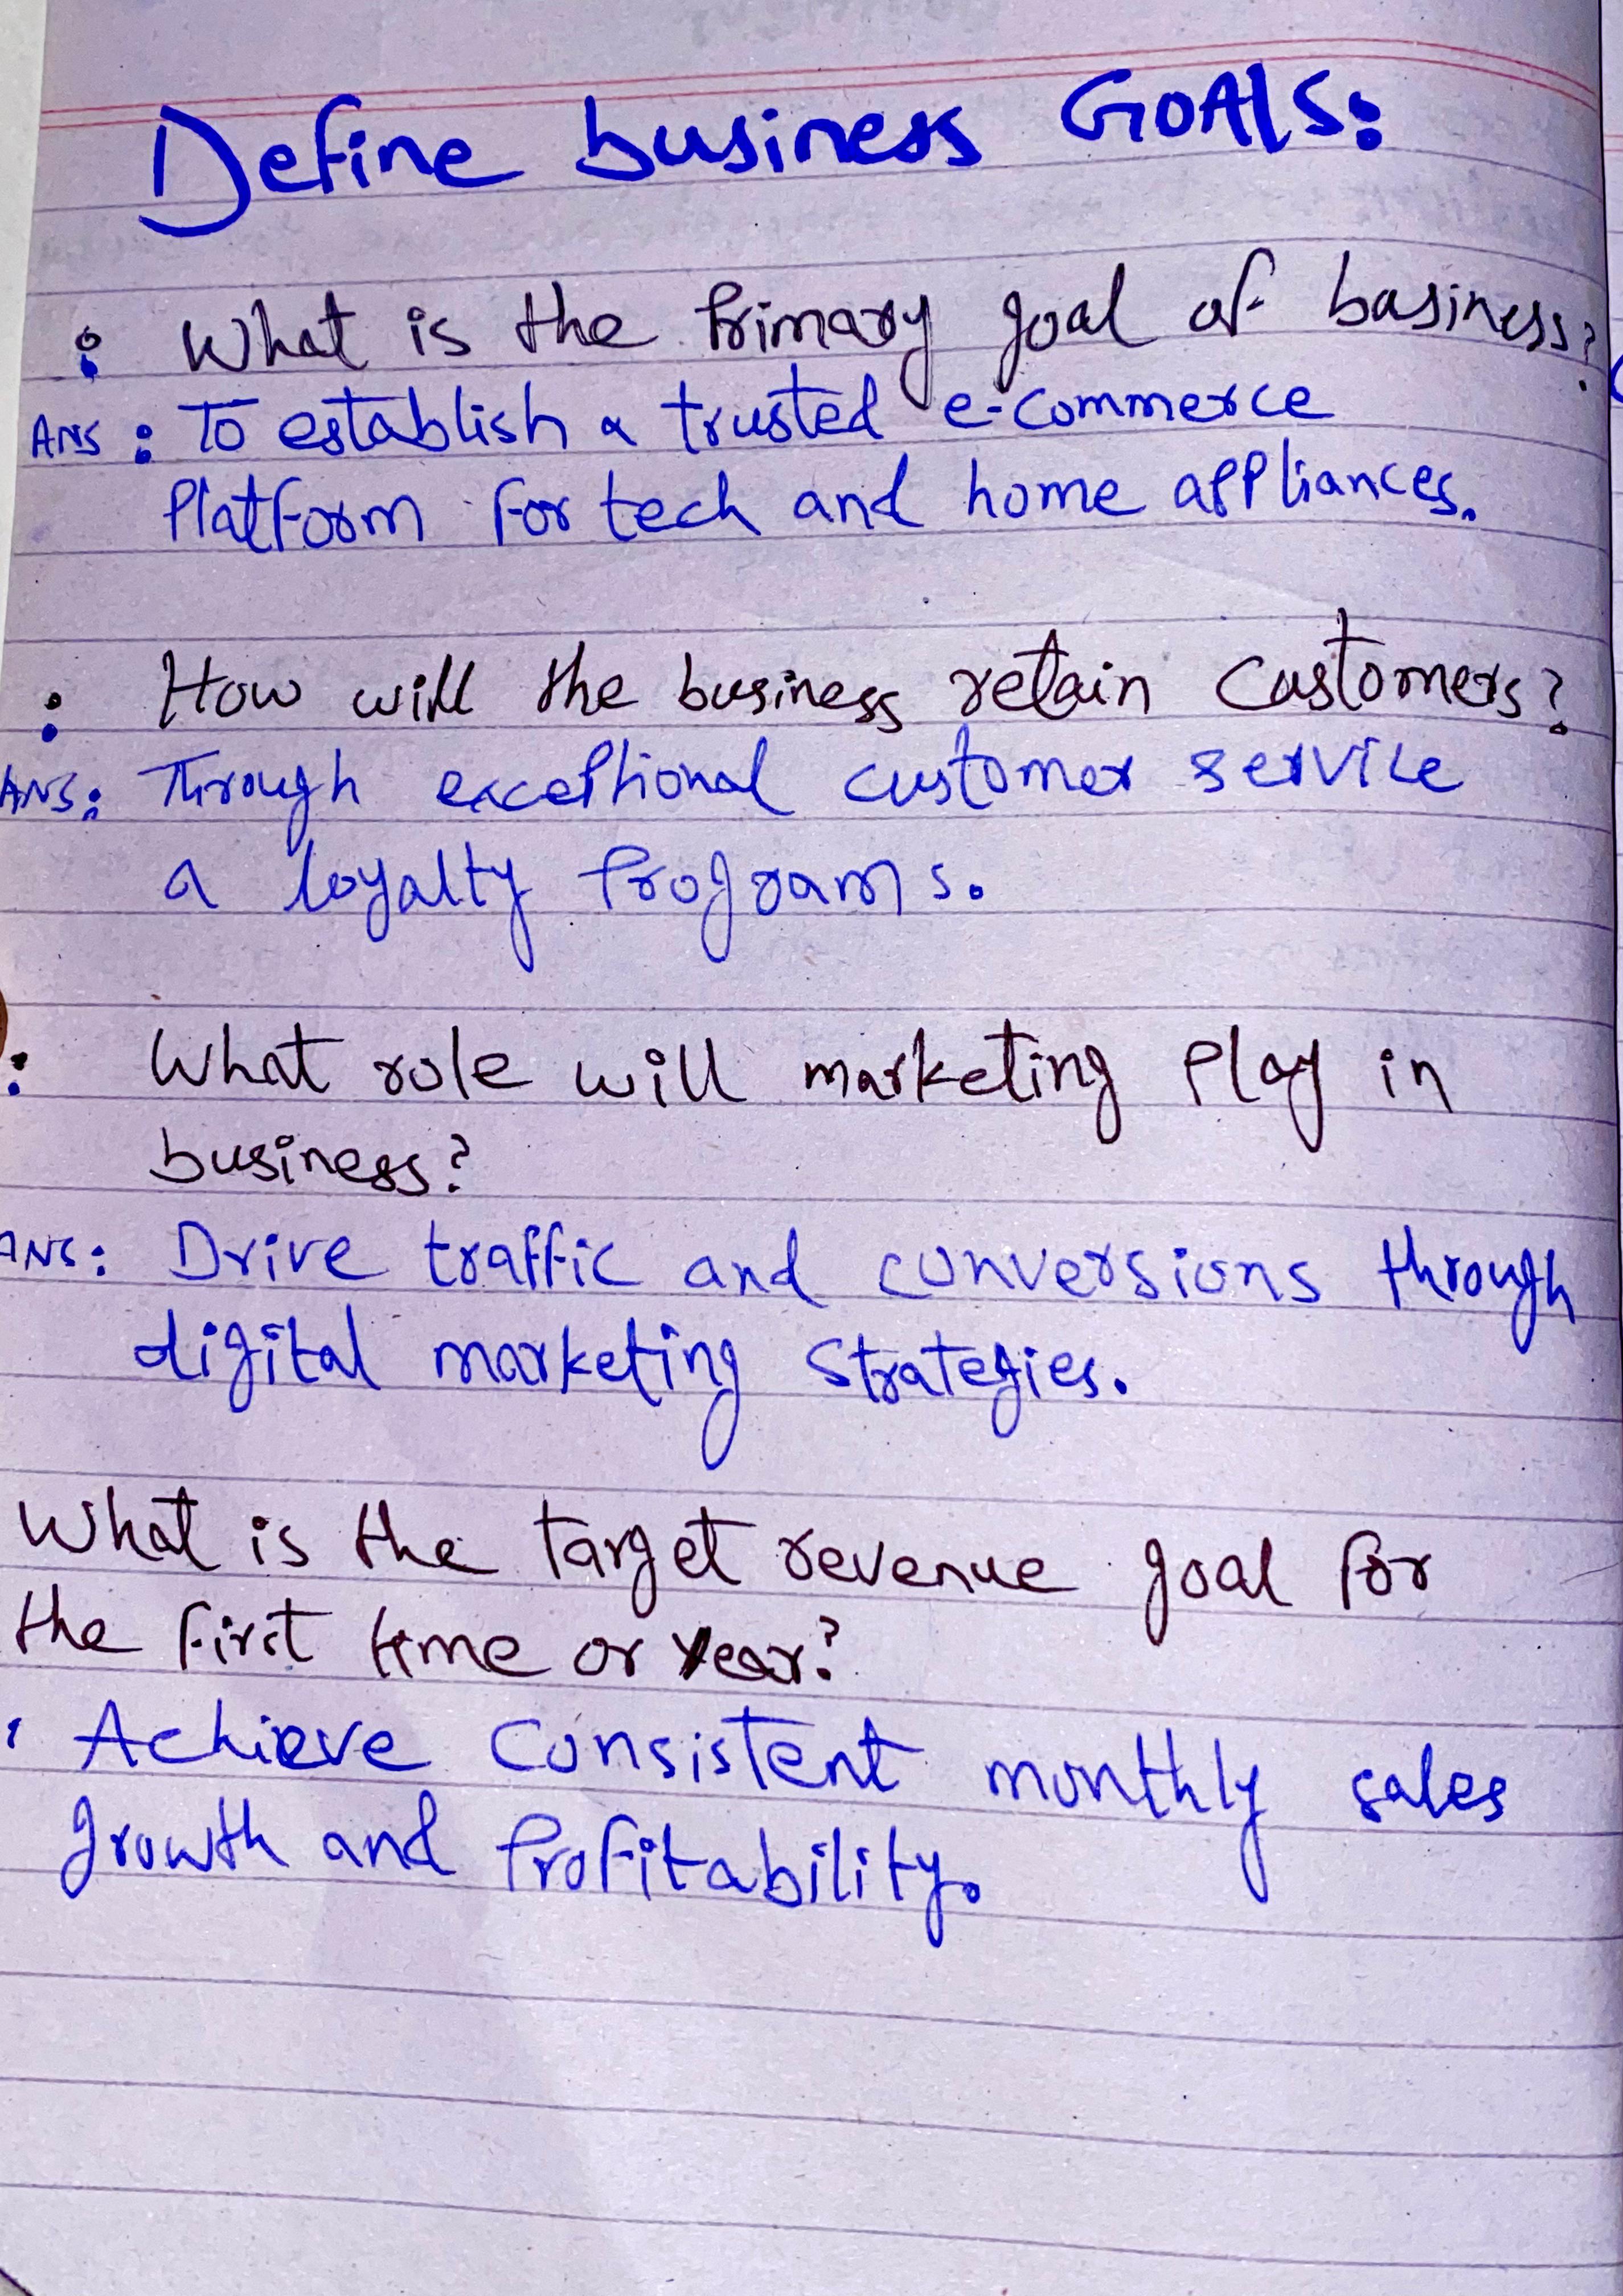 Define business GOAlS:
: What is the Primary goal of basiness?
ANS : To establish a trusted e-commerce
Platform for tech and home appliances.
: How will the business retain Customers?
ANS: Through exceptional customer service
a loyalty Programs.
: What role will marketing Play in
business?
ANS: Drive traffic and conversions through
digital marketing Strategies.
What is the target revenue goal for
the first time or year?
Achieve consistent monthly sales
growth and Profitability.